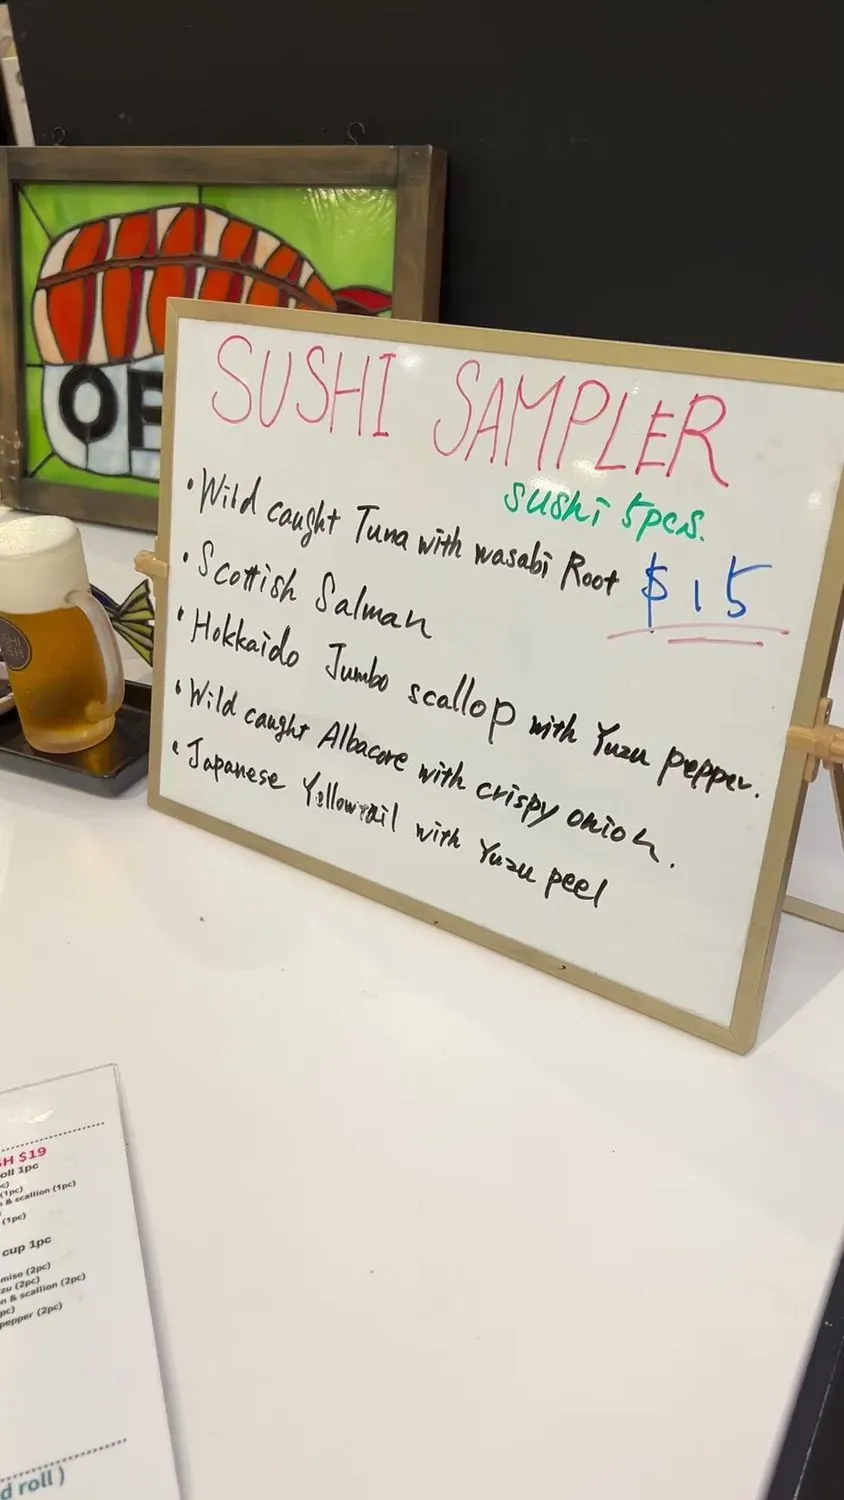 OE
SUSHI SAMPLER
sushi 5pcs.
• Wild caught Tuna with wasabi Root
$15
• Scottish Salman
• Hokkaido Jumbo scallop with Yuzu pepper.
• Wild caught Albacore with crispy onion.
• Japanese Yellowtail with Yuzu peel
SH $19
oll 1pc
(1pc)
& scallion (1pc)
(1pc)
cup 1pc
miso (2pc)
zu (2pc)
n & scallion (2pc)
pc)
pepper (2pc)
d roll )